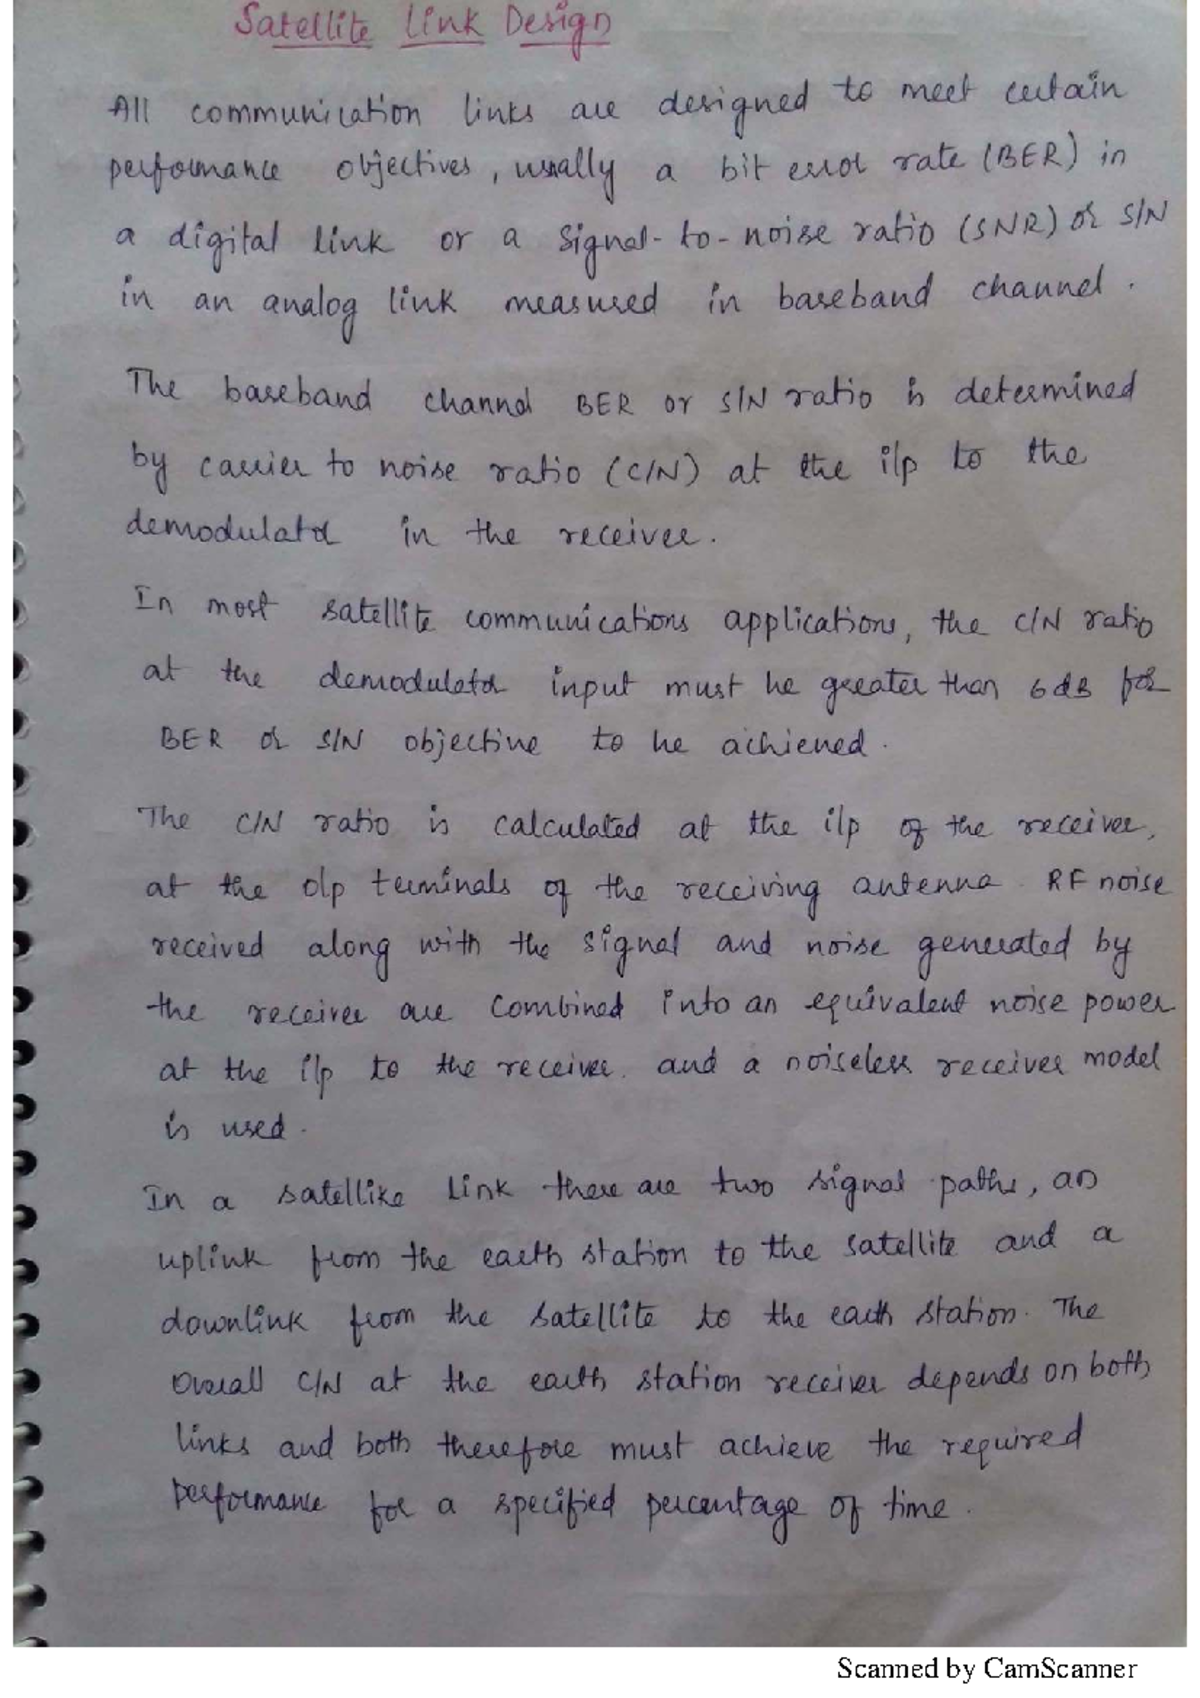 Satellite Link Design
All communication links are designed to meet certain
performance objectives, usually a bit error rate (BER) in
a digital link or a signal-to-noise ratio (SNR) or S/N
in an analog link measured in baseband channel.
The baseband channel BER or S/N ratio is determined
by carrier to noise ratio (C/N) at the i/p to the
demodulator in the receiver.
In most satellite communications applications, the C/N ratio
at the demodulator input must be greater than 6dB for
BER or S/N objective to be achieved.
The C/N ratio is calculated at the i/p of the receiver,
at the o/p terminals of the receiving antenna. RF noise
received along with the signal and noise generated by
the receiver are combined into an equivalent noise power
at the i/p to the receiver. and a noiseless receiver model
is used.
In a satellike link there are two signal paths, an
uplink from the earth station to the satellite and a
downlink from the satellite to the earth station. The
overall C/N at the earth station receiver depends on both
links and both therefore must achieve the required
performance for a specified percentage of time.
Scanned by CamScanner